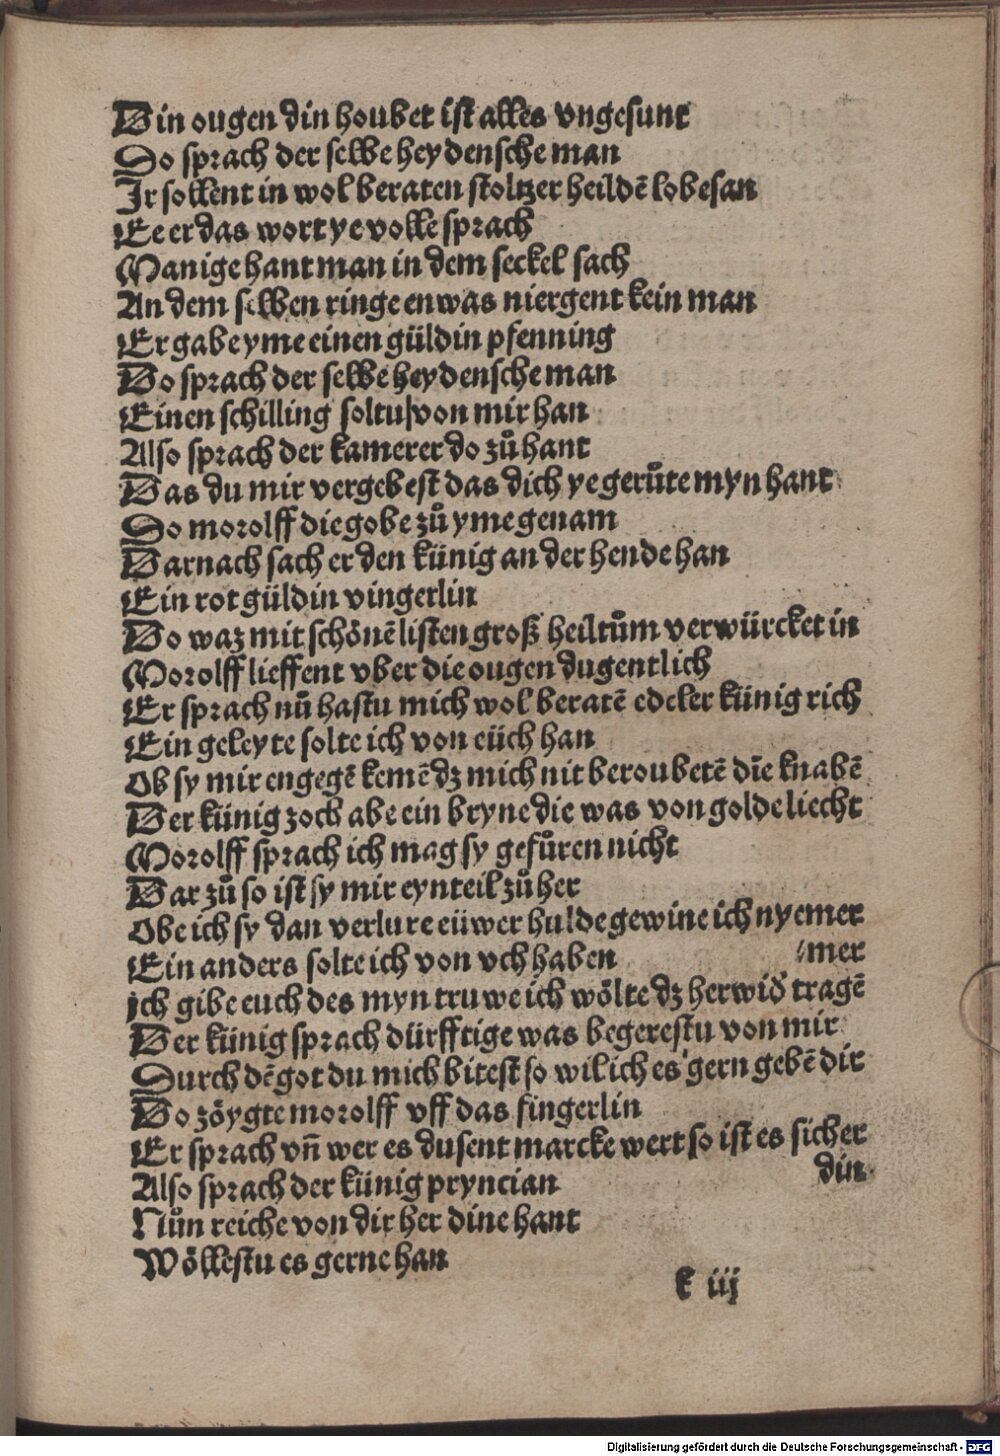 Din ougen din houbet ist alles vngesunt
So sprach der selbe heydensche man
Jr sollent in wol beraten stoltzer heildē lobesan
Ee er das wort ye volle sprach
Manige hant man in dem seckel sach
An dem selben ringe en was niergent kein man
Er gabe yme einen güldin pfenning
Do sprach der selbe heydensche man
Einen schilling soltu von mir han
Also sprach der kamerer do zů hant
Das du mir vergebest das dich ye gerůte myn hant
So morolff die gobe zů yme genam
Darnach sach er den künig an der hende han
Ein rot güldin vingerlin
Do waz mit schönē listen groß heiltům verwürcket in
Morolff lieffent vber die ougen dugentlich
Er sprach nū hastu mich wol beratē edeler künig rich
Ein geleyte solte ich von eüch han
Ob sy mir engegē kemē dz mich nit beroubetē die knabē
Der künig zoch abe ein bryne die was von golde liecht
Morolff sprach ich mag sy gefůren nicht
Dar zů so ist sy mir eyn teil zů her
Obe ich sy dan verlure eüwer hulde gewine ich nyemer
Ein anders solte ich von vch haben mer
ich gibe euch des myn truwe ich wölte dz her wid' tragē
Der künig sprach dürfftige was begerestu von mir
Durch dē got du mich bitest so wil ich es gern gebē dir
Do zöygte morolff vff das fingerlin
Er sprach vñ wer es dusent marcke wert so ist es sicher
din
Also sprach der künig pryncian
Nůn reiche von dir her dine hant
Wöllestu es gerne han
k iij
Digitalisierung gefördert durch die Deutsche Forschungsgemeinschaft - DFG